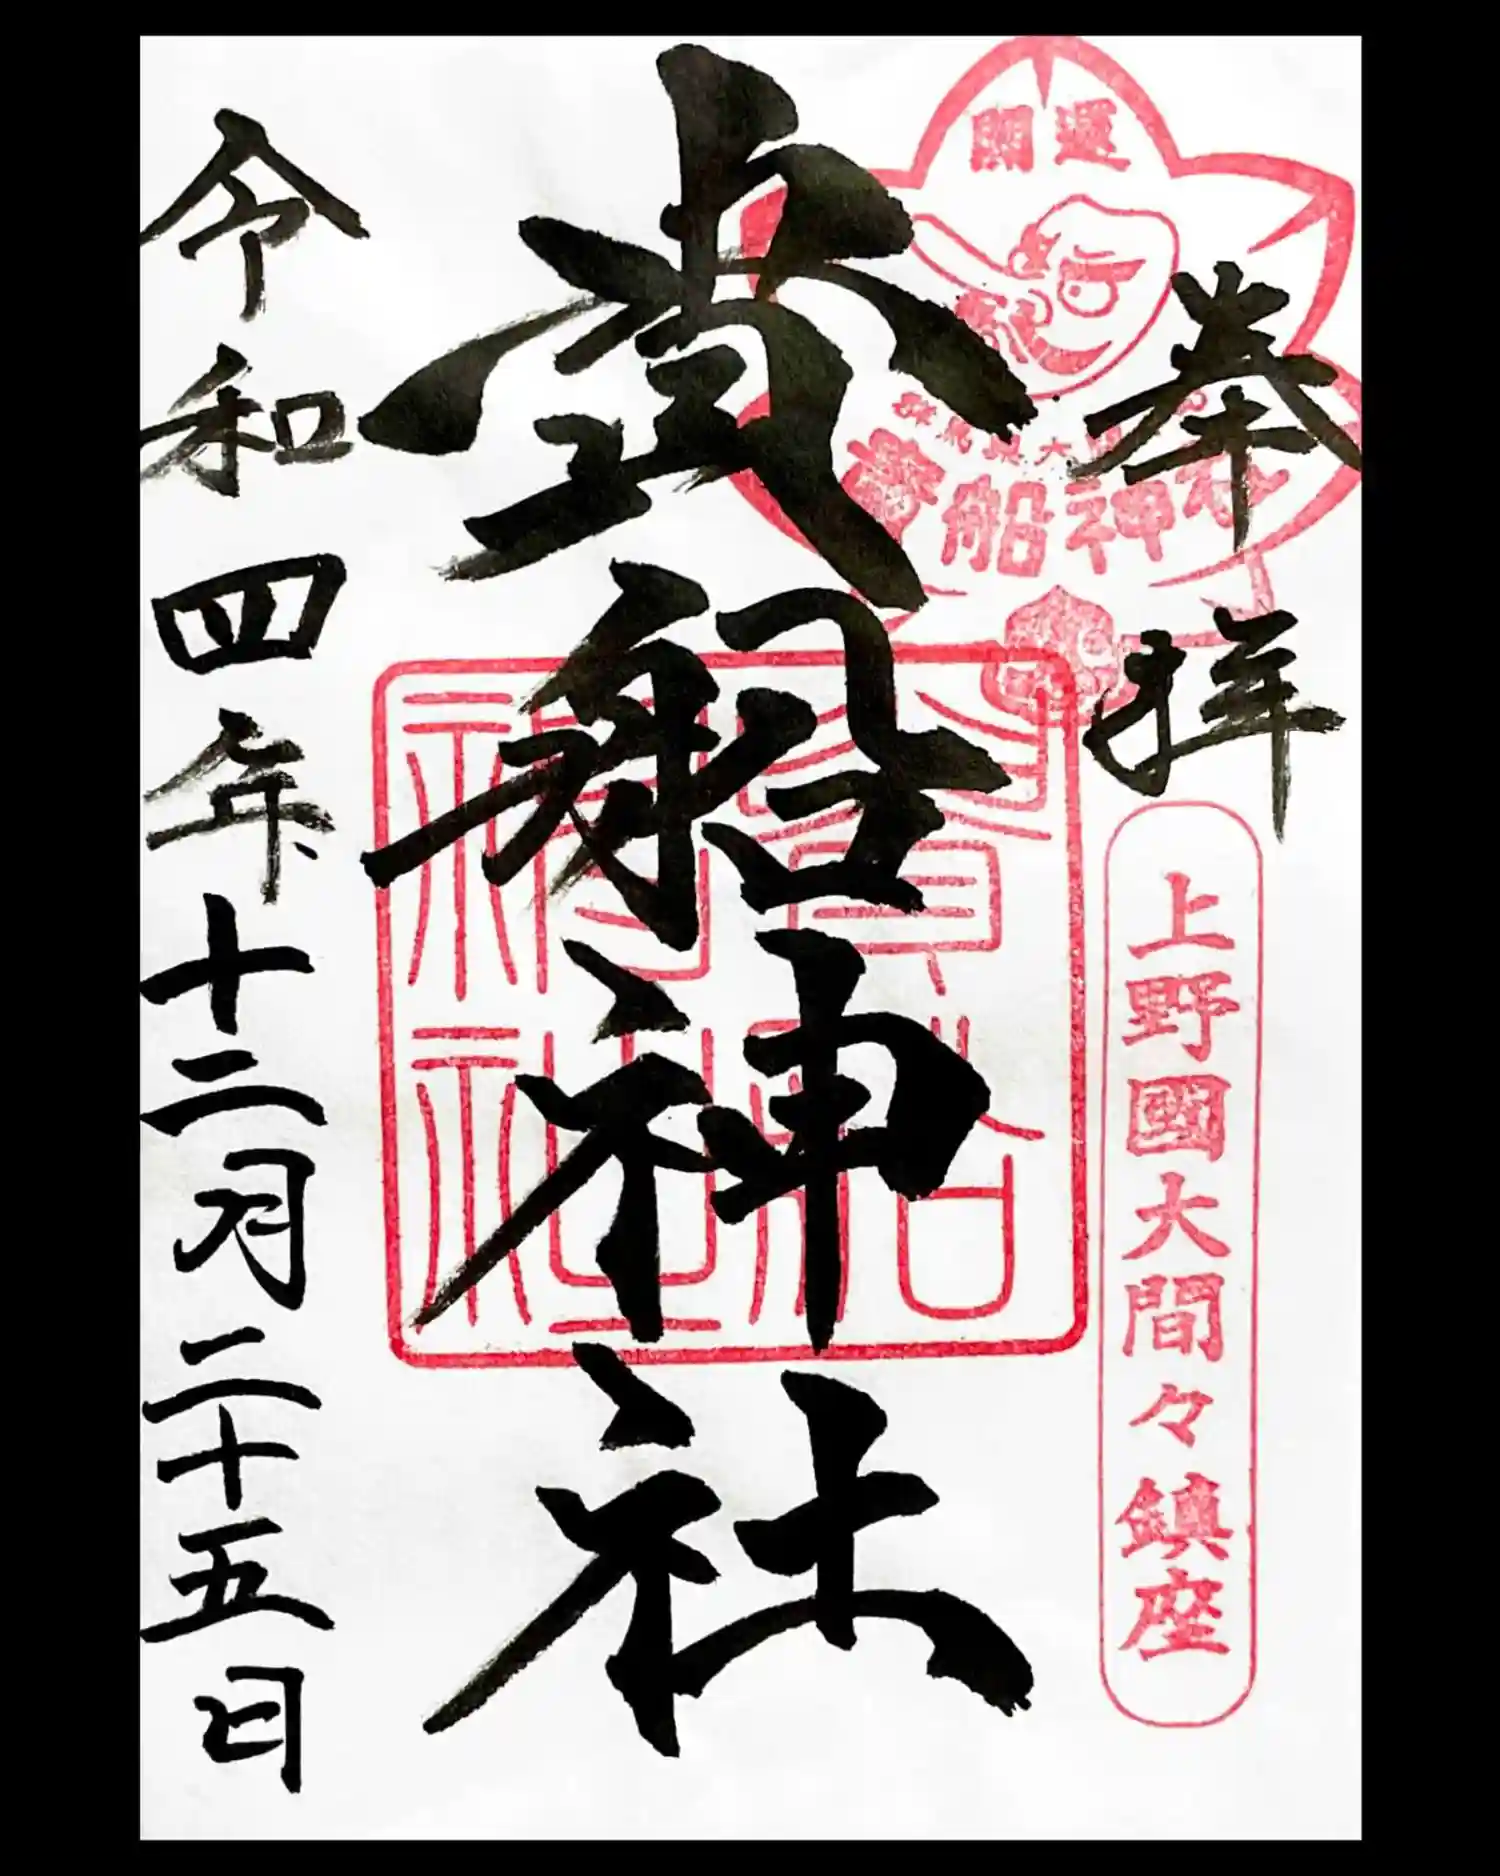 開運
群馬県大間々
貴船神社
奉拝
上野國大間々鎮座
貴船神社
貴船神社
令和四年十二月二十五日